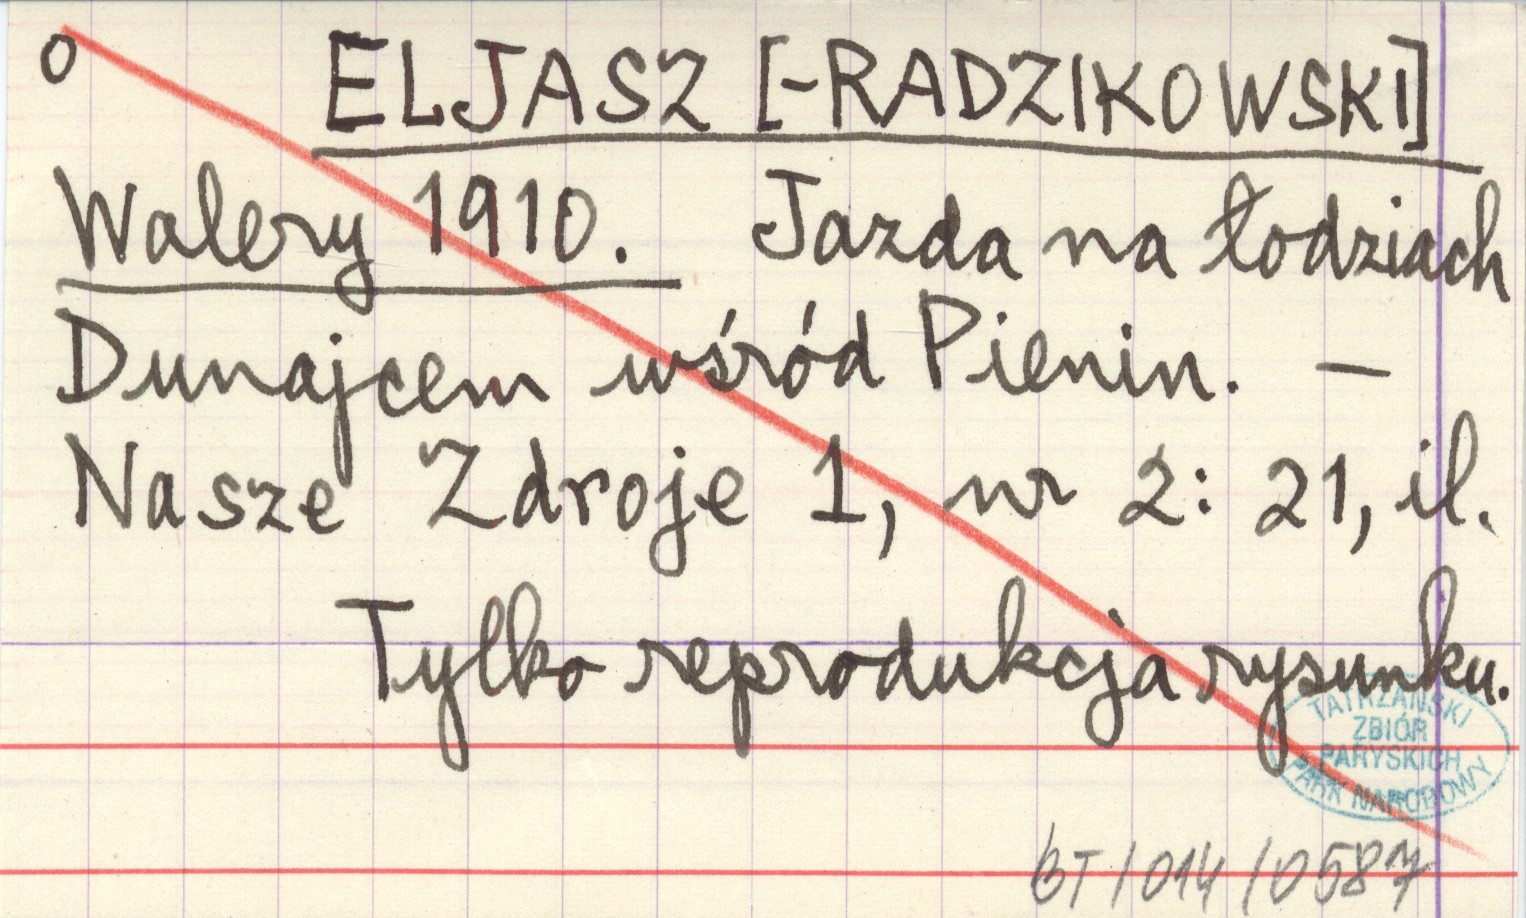 o ELJASZ [-RADZIKOWSKI]
Walery 1910. Jazda na łodziach
Dunajcem wśród Pienin. —
Nasze Zdroje 1, nr 2: 21, il.
Tylko reprodukcja rysunku.
TATRZAŃSKI
ZBIÓR
PARYSKICH
PARK NARODOWY
BT/014/0587